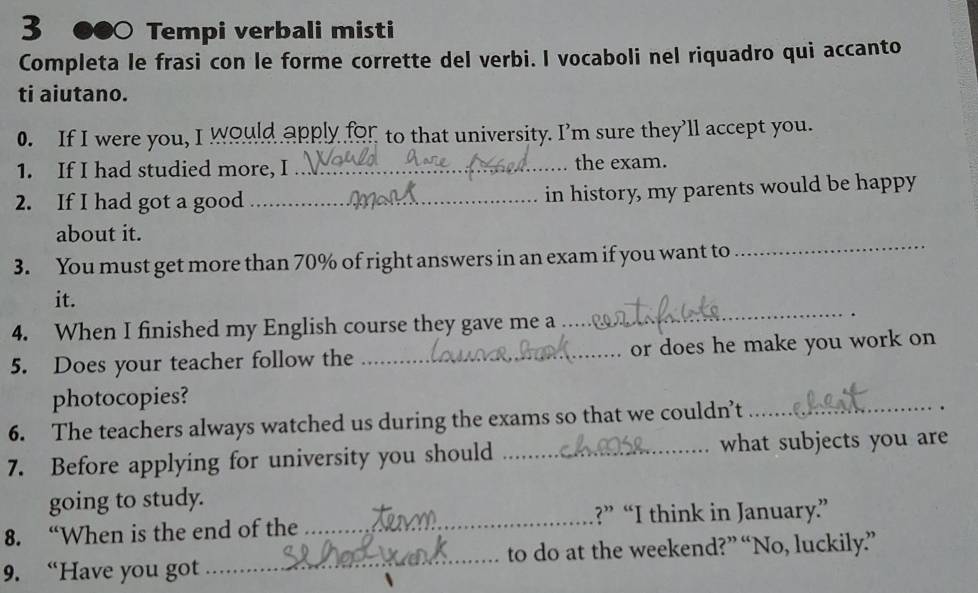 3 ●●○ Tempi verbali misti
Completa le frasi con le forme corrette del verbi. I vocaboli nel riquadro qui accanto
ti aiutano.
0. If I were you, I would apply for to that university. I'm sure they'll accept you.
1. If I had studied more, I Would have passed the exam.
2. If I had got a good mark in history, my parents would be happy
about it.
3. You must get more than 70% of right answers in an exam if you want to ....................
it.
4. When I finished my English course they gave me a certificate .
5. Does your teacher follow the course book or does he make you work on
photocopies?
6. The teachers always watched us during the exams so that we couldn't cheat .
7. Before applying for university you should choose what subjects you are
going to study.
8. “When is the end of the term ?” “I think in January.”
9. “Have you got schoolwork to do at the weekend?” “No, luckily.”